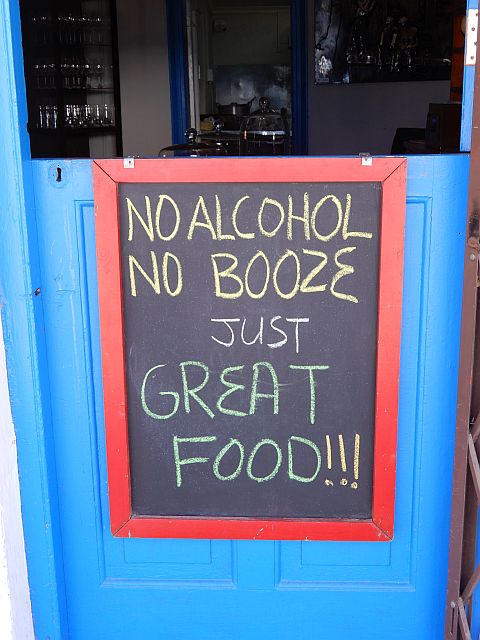 NO ALCOHOL
NO BOOZE
JUST
GREAT
FOOD!!!